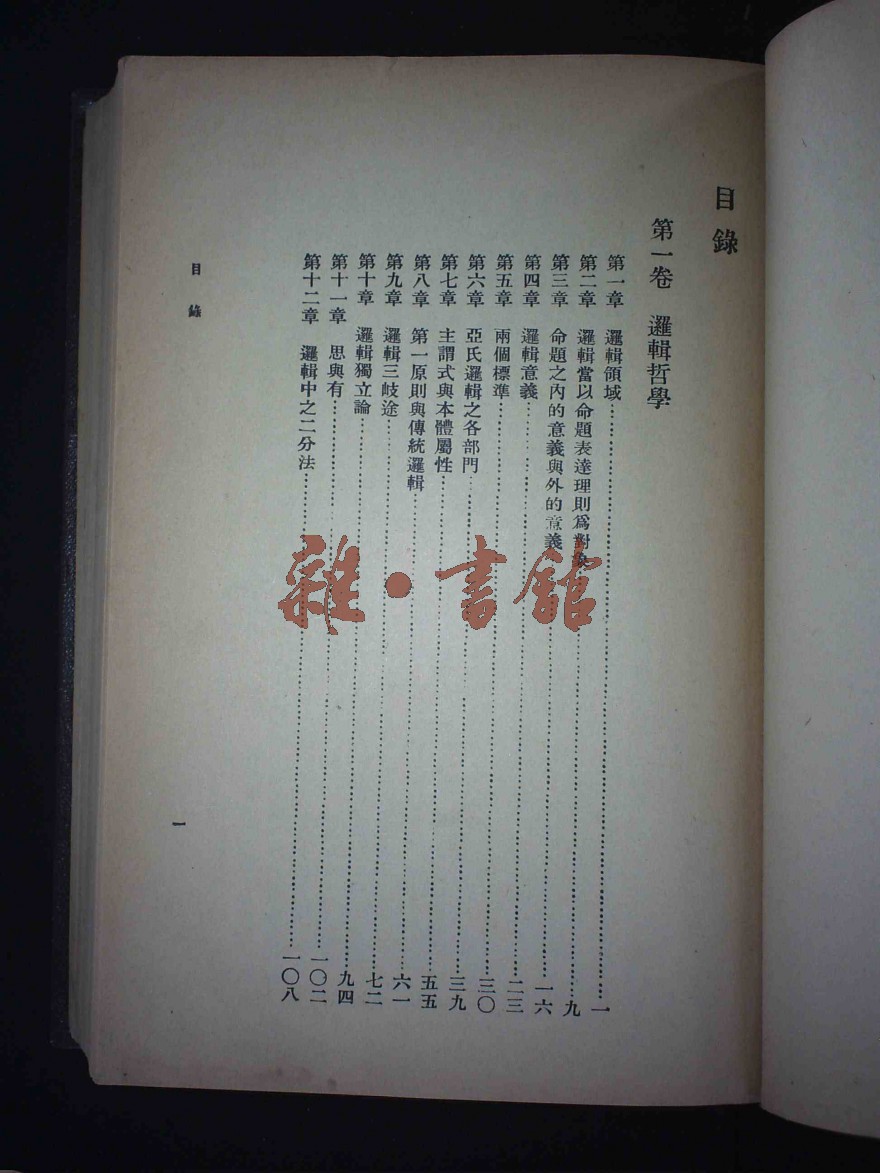 目錄
第一卷 邏輯哲學
第一章 邏輯領域……一
第二章 邏輯當以命題表達理則爲對象……九
第三章 命題之內的意義與外的意義……一六
第四章 邏輯意義……二三
第五章 兩個標準……三〇
第六章 亞氏邏輯之各部門……三九
第七章 主謂式與本體屬性……五五
第八章 第一原則與傳統邏輯……六一
第九章 邏輯三岐途……七二
第十章 邏輯獨立論……九四
第十一章 思與有……一〇二
第十二章 邏輯中之二分法……一〇八
目錄
一
雜·書館